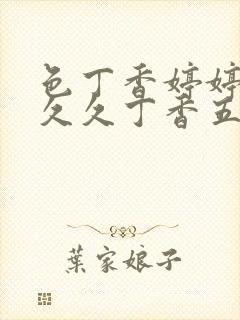 色丁香婷婷
久久丁香五
葉家娘子